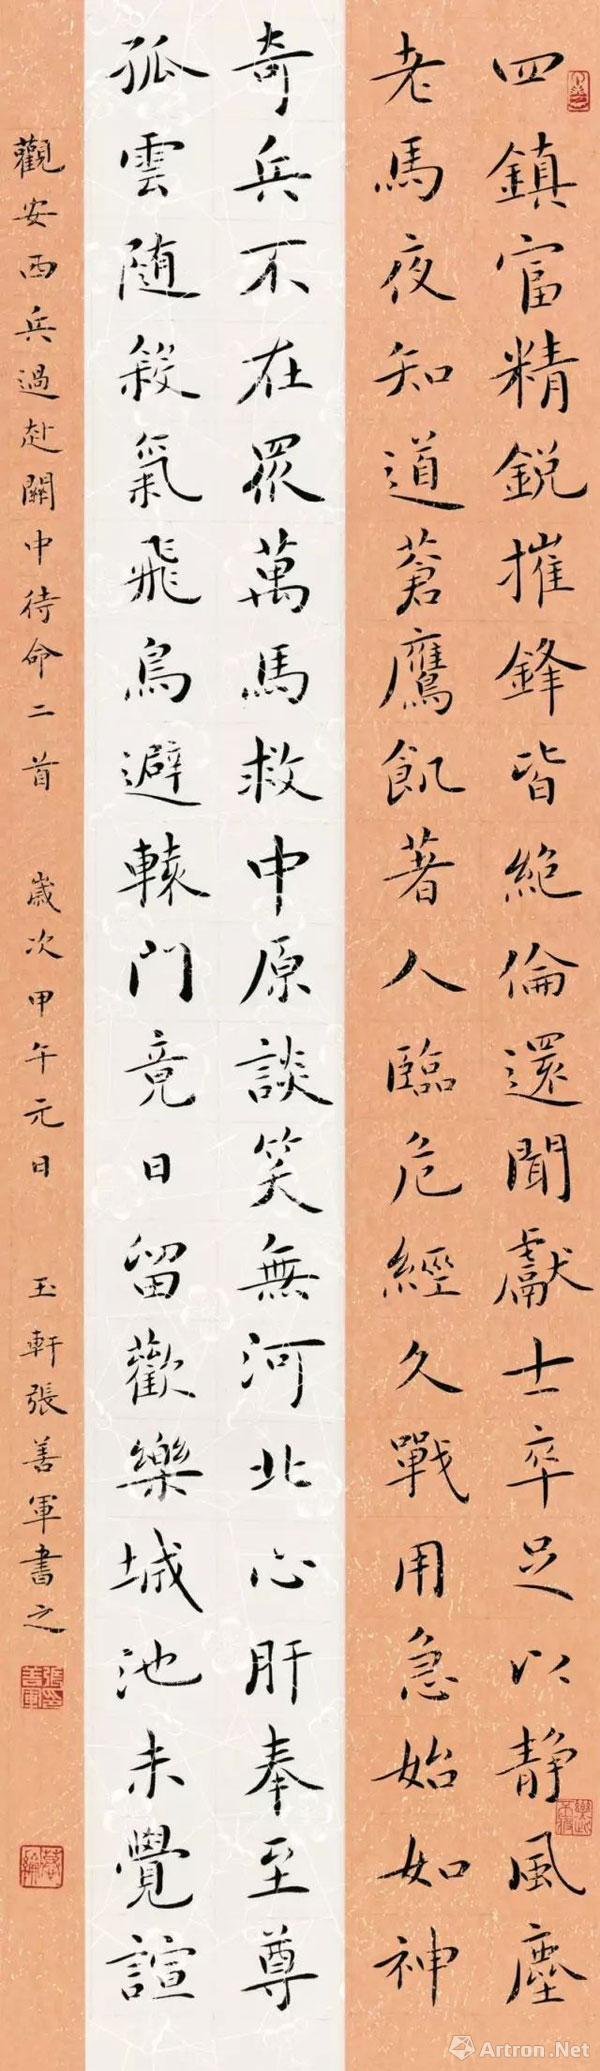 四鎮富精銳摧鋒皆絶倫還聞獻士卒足以靜風塵
老馬夜知道蒼鷹飢著人臨危經久戰用急始如神
奇兵不在眾萬馬救中原談笑無河北心肝奉至尊
孤雲随殺氣飛鳥避轅門竟日留歡樂城池未覺諠
觀安西兵過赴關中待命二首 歲次甲午元日 玉軒張善軍書之
Artron.Net